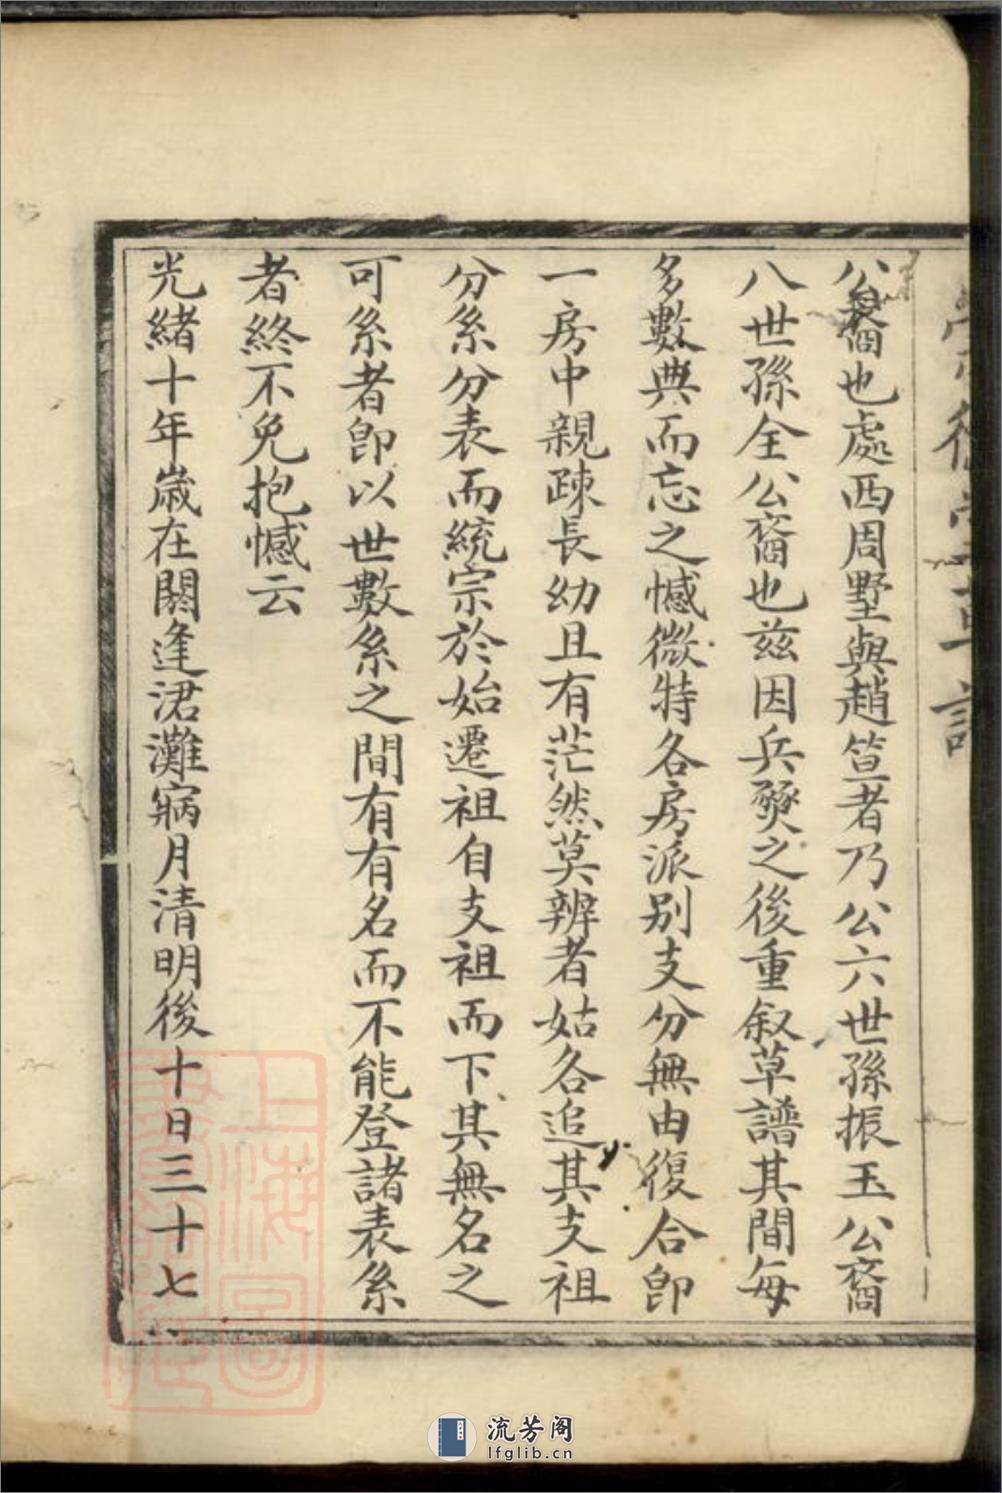 公裔也處西周墅與趙笪者乃公六世孫振玉公裔
八世孫全公裔也茲因兵燹之後重叙草譜其間每
多數典而忘之憾微特各房派别支分無由復合卽
一房中親疎長幼且有茫然莫辨者姑各追其支祖
分系分表而統宗於始遷祖自支祖而下其無名之
可系者卽以世數系之間有有名而不能登諸表系
者終不免抱憾云
光緒十年歲在閼逢涒灘寎月清明後十日三十七
上海圖
書館藏
流芳阁
lfglib.cn